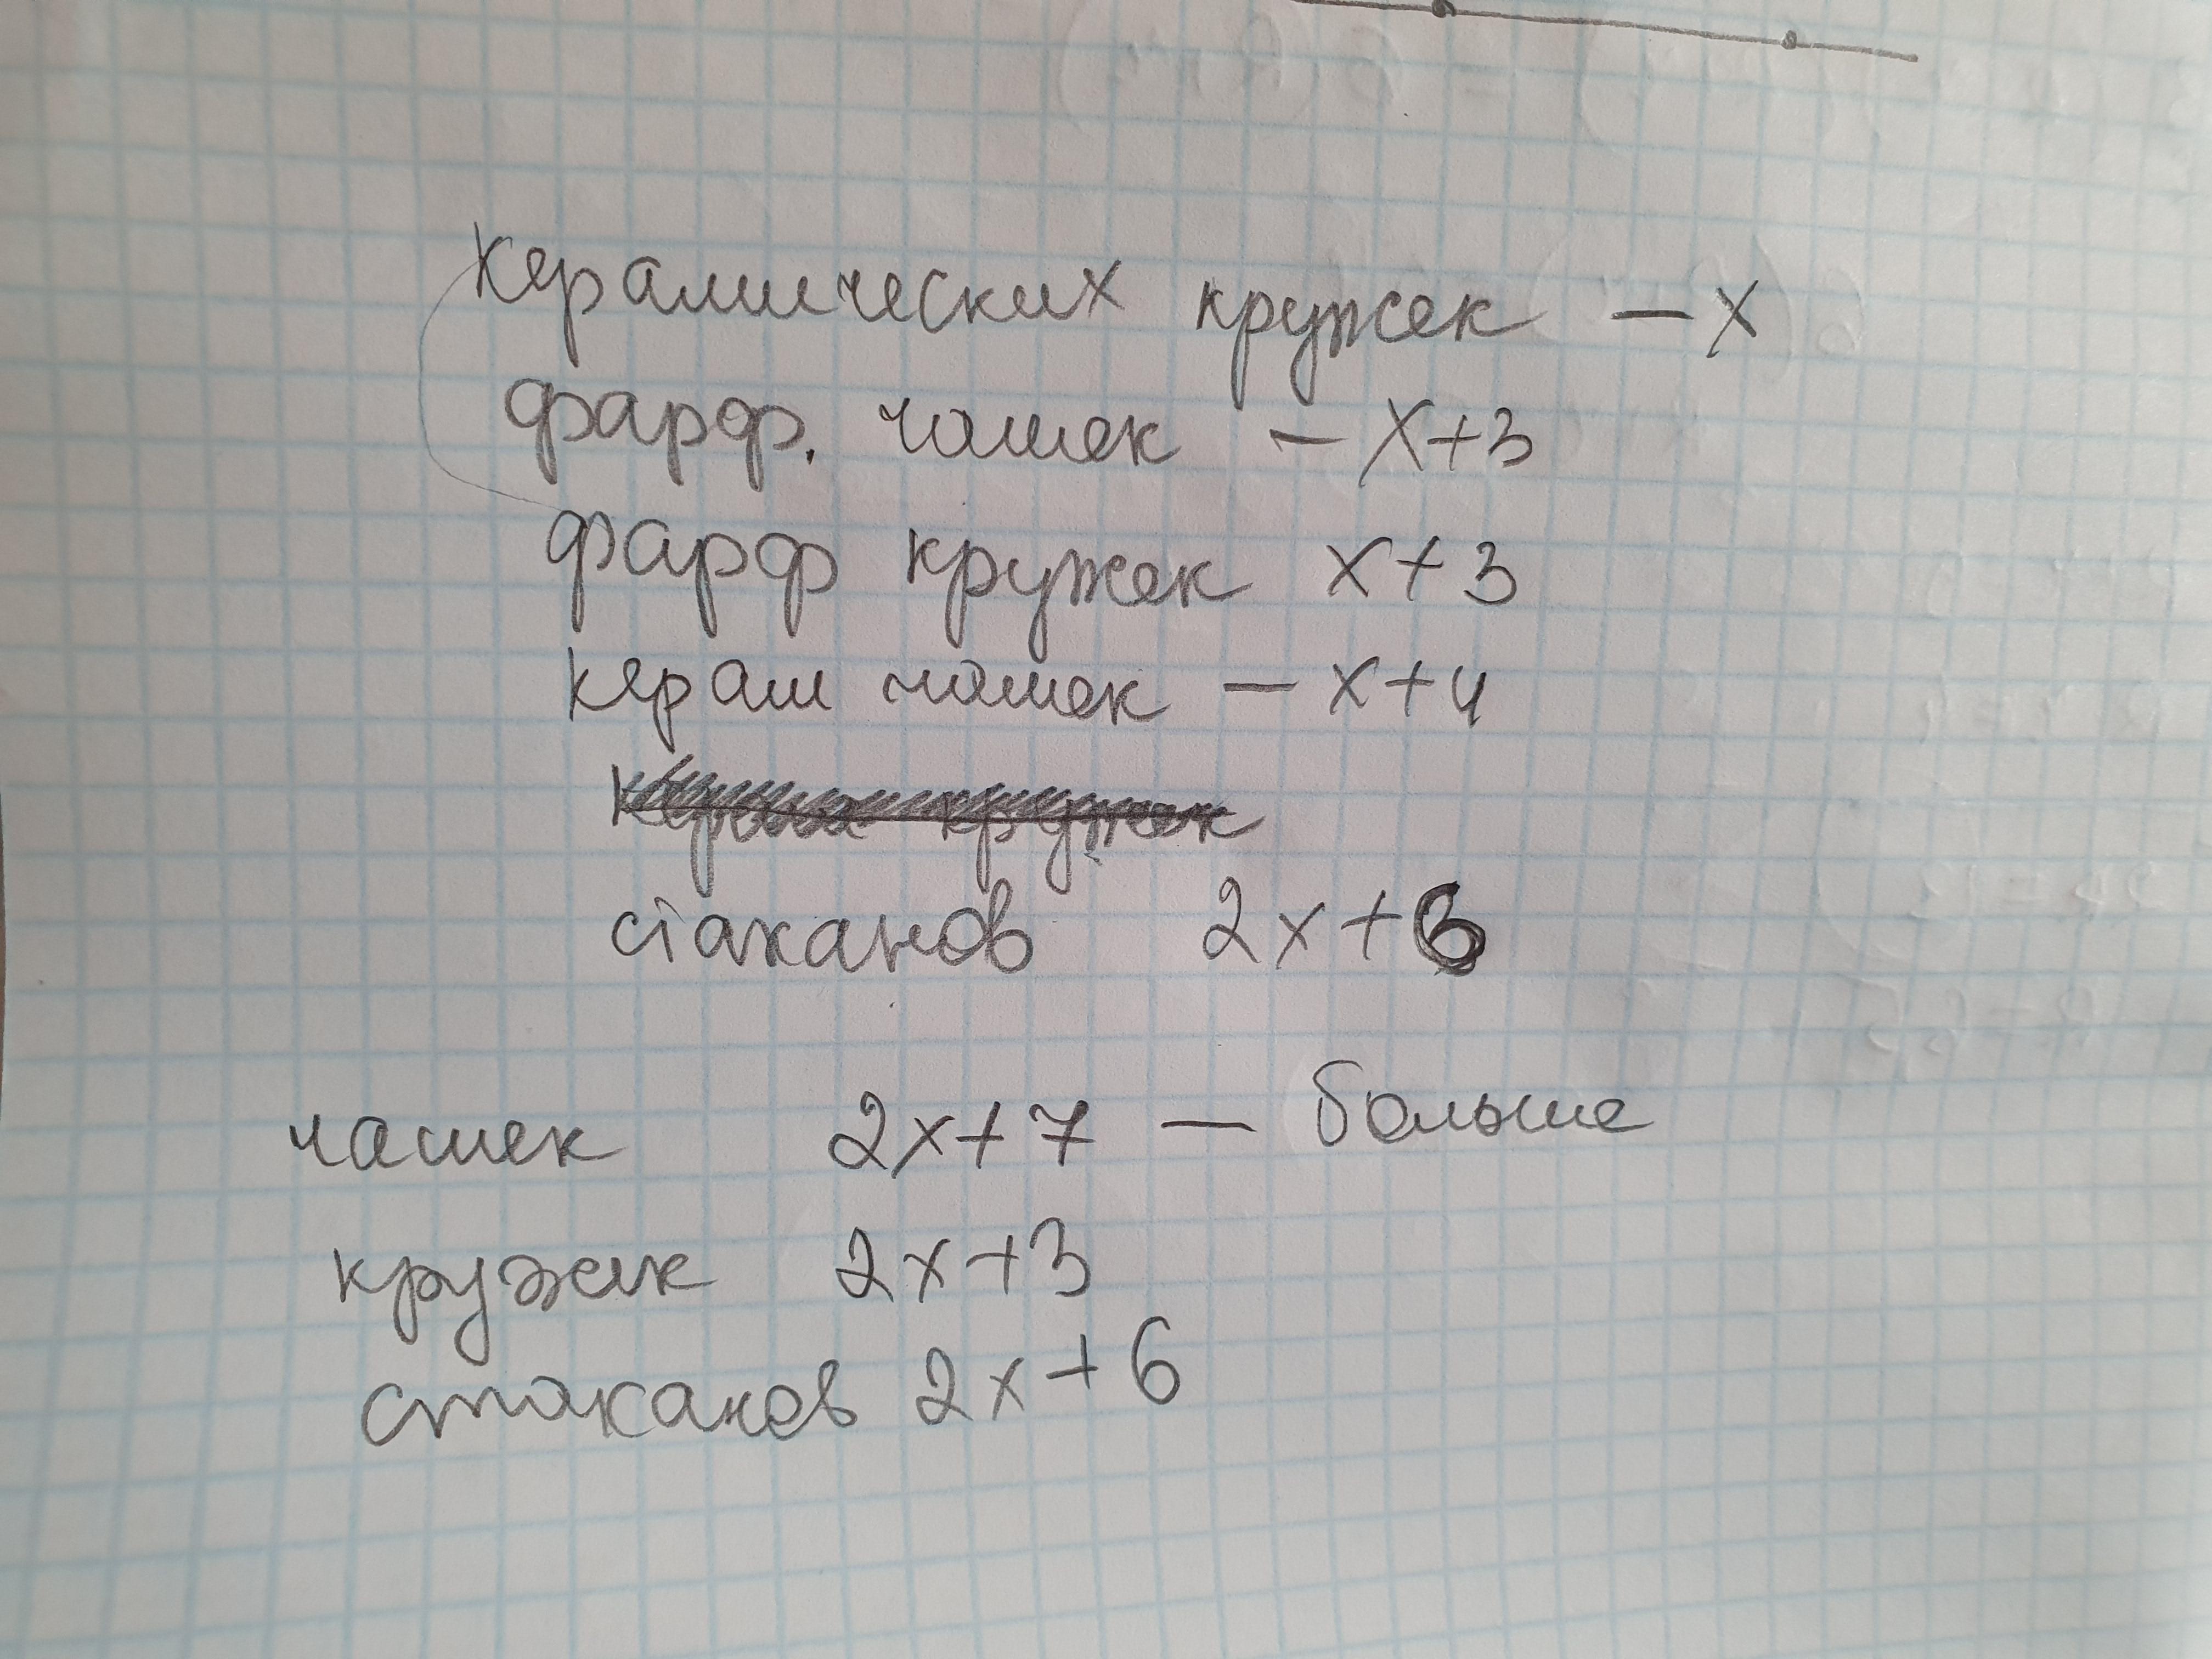 Керамических кружек — х
фарф. чашек — х+3
фарф кружек х+3
керам чашек — х+4
стаканов 2х+6
чашек 2х+7 — больше
кружек 2х+3
стаканов 2х+6